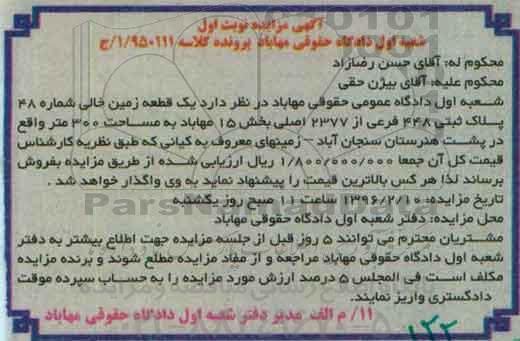 آگهی مزایده نوبت اول
شعبه اول دادگاه حقوقی مهاباد پرونده کلاسه ۱/۹۵۰۱۱۱/ج
محکوم له: آقای حسن رضازاد
محکوم علیه: آقای بیژن حقی
شعبه اول دادگاه عمومی حقوقی مهاباد در نظر دارد یک قطعه زمین خالی شماره ۴۸
پلاک ثبتی ۴۴۸ فرعی از ۲۳۷۷ اصلی بخش ۱۵ مهاباد به مساحت ۳۰۰ متر واقع
در پشت هنرستان سنجان آباد – زمینهای معروف به کیانی که طبق نظریه کارشناس
قیمت کل آن جمعا ۱/۸۰۰/۰۰۰/۰۰۰ ریال ارزیابی شده از طریق مزایده بفروش
برساند لذا هر کس بالاترین قیمت را پیشنهاد نماید به وی واگذار خواهد شد .
تاریخ مزایده: ۱۳۹۶/۲/۱۰ ساعت ۱۱ صبح روز یکشنبه
محل مزایده: دفتر شعبه اول دادگاه حقوقی مهاباد
مشتریان محترم می توانند ۵ روز قبل از جلسه مزایده جهت اطلاع بیشتر به دفتر
شعبه اول دادگاه حقوقی مهاباد مراجعه و از مفاد مزایده مطلع شوند و برنده مزایده
مکلف است فی المجلس ۵ درصد ارزش مورد مزایده را به حساب سپرده موقت
دادگستری واریز نمایند.
۱۱/ م الف مدیر دفتر شعبه اول دادگاه حقوقی مهاباد
۱۲۲